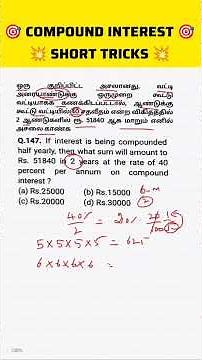 🎯 COMPOUND INTEREST 🎯
💥 SHORT TRICKS 💥
ஒரு குறிப்பிட்ட அசலானது, வட்டி
அரையாண்டுக்கு ஒருமுறை கூட்டு
வட்டியாகக் கணக்கிடப்பட்டால், ஆண்டுக்கு
கூட்டு வட்டியில் 40 சதவீதம் என்ற விகிதத்தில்
2 ஆண்டுகளில் ரூ. 51840 ஆக மாறும் எனில்
அசலை காண்க
Q.147. If interest is being compounded
half yearly, then what sum will amount to
Rs. 51840 in 2 years at the rate of 40
percent per annum on compound
interest ?
(a) Rs.25000 (b) Rs.15000
(c) Rs.20000 (d) Rs.30000
6-m
2
40% / 2 = 20%
5 x 5 x 5 x 5 = 625
6 x 6 x 6 x 6 =